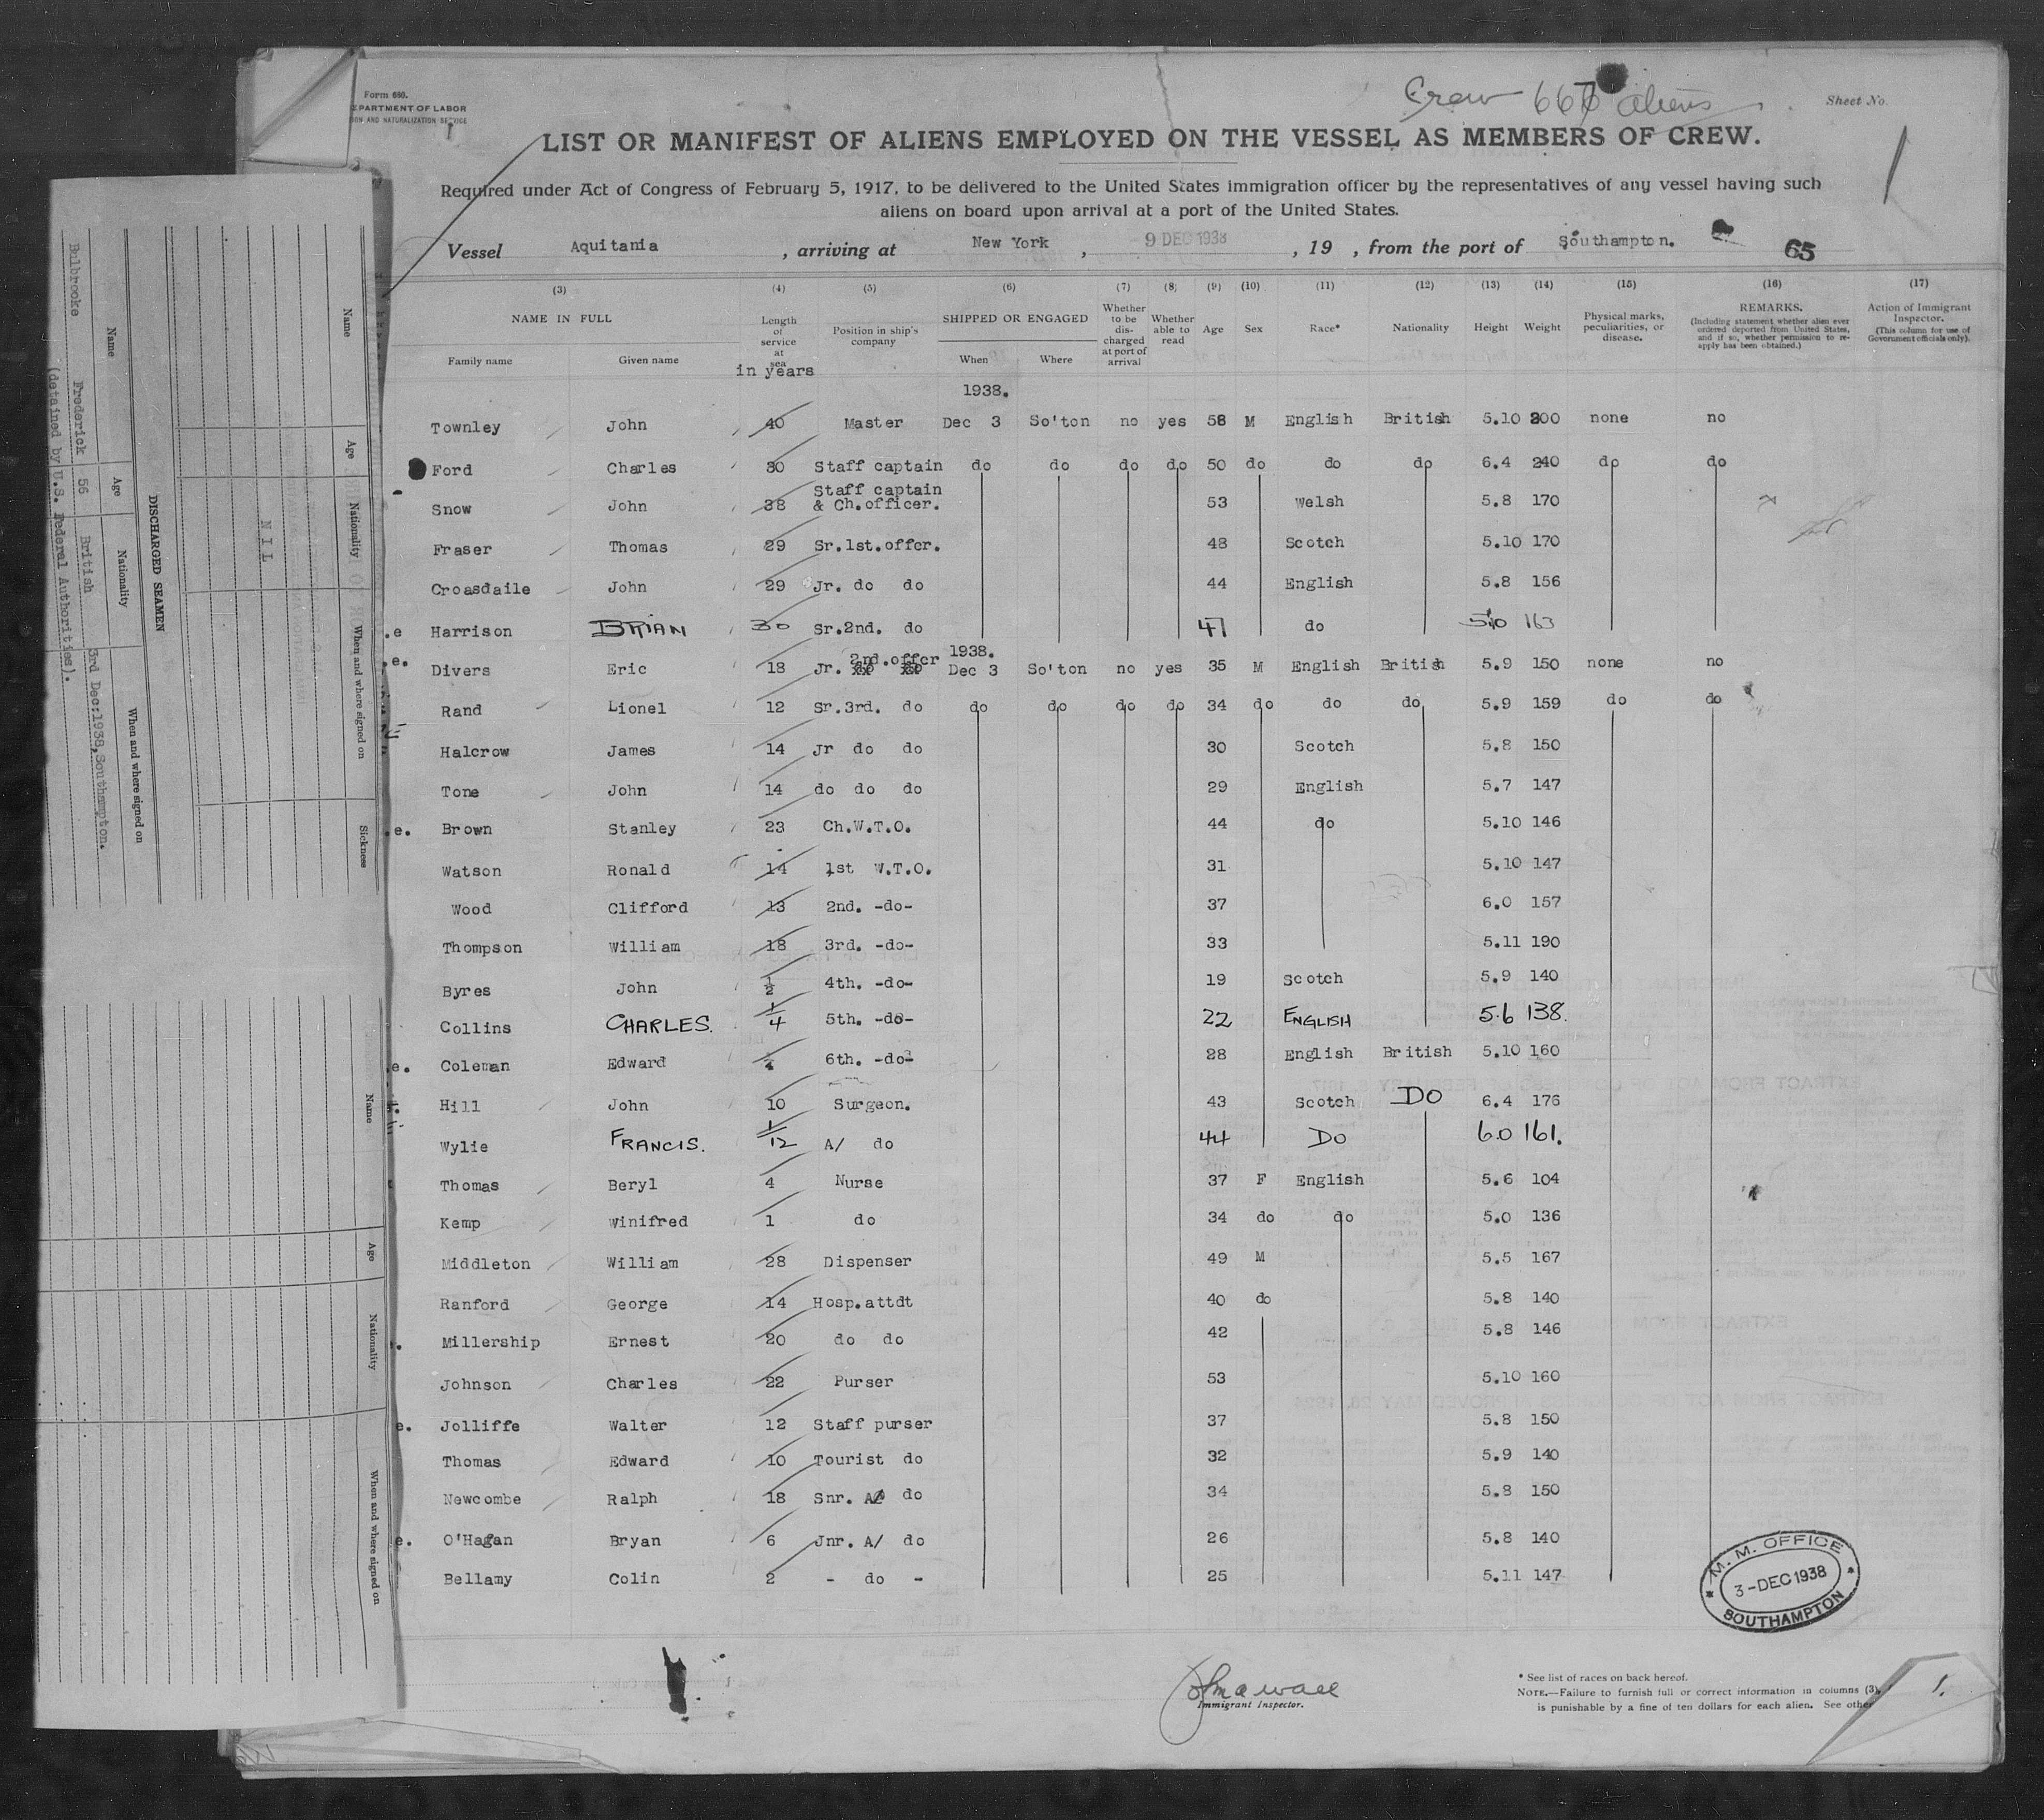 Form 680.
EPARTMENT OF LABOR
ION AND NATURALIZATION SERVICE
Crew 667 aliens
Sheet No.
1
LIST OR MANIFEST OF ALIENS EMPLOYED ON THE VESSEL AS MEMBERS OF CREW.
Required under Act of Congress of February 5, 1917, to be delivered to the United States immigration officer by the representatives of any vessel having such
aliens on board upon arrival at a port of the United States.
Vessel Aquitania , arriving at New York , 9 DEC 1938 , 19 , from the port of Southampton.
65
(3) (4) (5) (6) (7) (8) (9) (10) (11) (12) (13) (14) (15) (16) (17)
NAME IN FULL
Family name Given name
Length of service at sea
in years
Position in ship's company
SHIPPED OR ENGAGED
When Where
Whether to be discharged at port of arrival
Whether able to read
Age Sex Race* Nationality Height Weight
Physical marks, peculiarities, or disease.
REMARKS.
(Including statement whether alien ever ordered deported from United States, and if so, whether permission to re-apply has been obtained.)
Action of Immigrant Inspector.
(This column for use of Government officials only).
1938.
Townley John 40 Master Dec 3 So'ton no yes 58 M English British 5.10 200 none no
Ford Charles 30 Staff captain do do do do 50 do do do 6.4 240 do do
Snow John 38 Staff captain & Ch.officer. 53 Welsh 5.8 170
Fraser Thomas 29 Sr.1st.offer. 48 Scotch 5.10 170
Croasdaile John 29 Jr. do do 44 English 5.8 156
.e Harrison BRIAN 30 Sr.2nd. do 47 do 5.10 163
1938.
.e. Divers Eric 18 Jr. 2nd.offer Dec 3 So'ton no yes 35 M English British 5.9 150 none no
Rand Lionel 12 Sr.3rd. do do do do do 34 do do do 5.9 159 do do
Halcrow James 14 Jr do do 30 Scotch 5.8 150
Tone John 14 do do do 29 English 5.7 147
.e. Brown Stanley 23 Ch.W.T.O. 44 do 5.10 146
Watson Ronald 14 1st W.T.O. 31 5.10 147
Wood Clifford 13 2nd. -do- 37 6.0 157
Thompson William 18 3rd. -do- 33 5.11 190
Byres John 1/2 4th. -do- 19 Scotch 5.9 140
Collins CHARLES. 1/4 5th. -do- 22 ENGLISH 5.6 138.
.e. Coleman Edward 6th. -do- 28 English British 5.10 160
Hill John 10 Surgeon. 43 Scotch DO 6.4 176
Wylie FRANCIS. 1/12 A/ do 44 DO 6.0 161.
Thomas Beryl 4 Nurse 37 F English 5.6 104
Kemp Winifred 1 do 34 do do 5.0 136
Middleton William 28 Dispenser 49 M 5.5 167
Ranford George 14 Hosp.attdt 40 do 5.8 140
Millership Ernest 20 do do 42 5.8 146
Johnson Charles 22 Purser 53 5.10 160
e. Jolliffe Walter 12 Staff purser 37 5.8 150
Thomas Edward 10 Tourist do 32 5.9 140
Newcombe Ralph 18 Snr. A/ do 34 5.8 150
e. O'Hagan Bryan 6 Jnr. A/ do 26 5.8 140
Bellamy Colin 2 - do - 25 5.11 147
M. M. OFFICE
3-DEC 1938
SOUTHAMPTON
Immigrant Inspector.
* See list of races on back hereof.
NOTE.—Failure to furnish full or correct information in columns (3),
is punishable by a fine of ten dollars for each alien. See other
1.
Name Age Nationality When and where signed on Sickness
NIL
DISCHARGED SEAMEN
Name Age Nationality When and where signed on
Bulbrooke Frederick 56 British 3rd Dec:1938,Southampton.
(detained by U.S. Federal Authorities).
Name Age Nationality When and where signed on